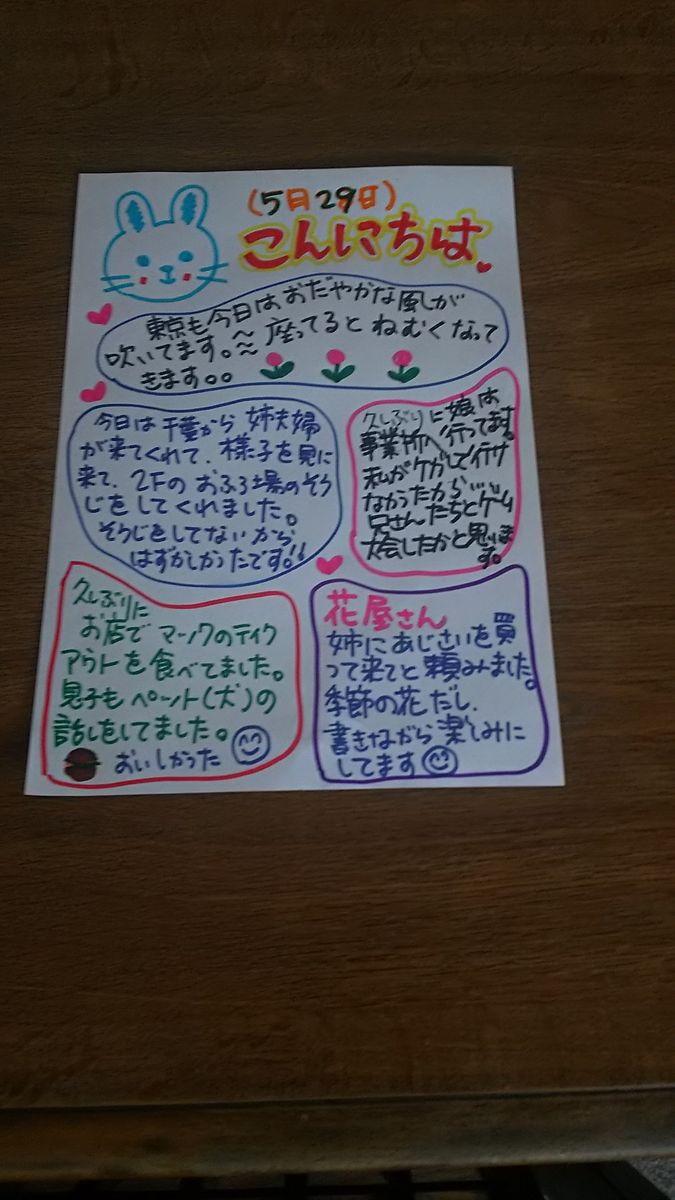 (5月29日)
こんにちは
東京も今日はおだやかな風しが
吹いてます。座ってると ねむくなって
きます。。
今日は 千葉から 姉夫婦
が来てくれて、様子を見に
来て、2Fの おふろ場のそう
じをしてくれました。
そうじをしてないから
はずかしかったです!!
久しぶりに娘は
事業所へ行ってます。
私がケガして行け
なかったから
兄さんたちとゲーム
大会したかと思います。
久しぶりに
お店で マックのテイク
アウトを食べてました。
息子も ペット(犬)の
話しをしてました。
おいしかった
花屋さん
姉にあじさいを買
って来てと頼みました。
季節の花だし、
書きながら楽しみに
してます